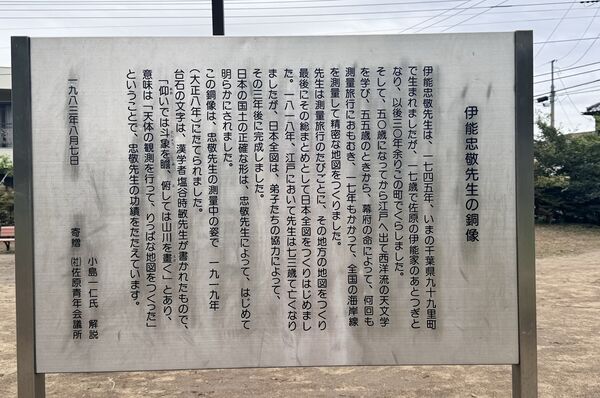 伊能忠敬先生の銅像
伊能忠敬先生は、一七四五年、いまの千葉県九十九里町
で生まれましたが、一七歳で佐原の伊能家のあとつぎと
なり、以後三〇年余りこの町でくらしました。
そして、五〇歳になってから江戸へ出て西洋流の天文学
を学び、五五歳のときから、幕府の命によって、何回も
測量旅行におもむき、一七年もかかって、全国の海岸線
を測量して精密な地図をつくりました。
先生は測量旅行のたびごとに、その地方の地図をつくり
最後にその総まとめとして日本全図をつくりはじめまし
た。一八一八年、江戸において先生は七三歳で亡くなり
ましたが、日本全図は、弟子たちの協力によって、
その三年後に完成しました。
日本の国土の正確な形は、忠敬先生によって、はじめて
明らかにされました。
この銅像は、忠敬先生の測量中の姿で 一九一九年
(大正八年)にたてられました。
台石の文字は、漢学者塩谷時敏先生が書かれたもので、
「仰いでは斗象を瞻、俯しては山川を畫く」とあり、
意味は「天体の観測を行って、りっぱな地図をつくった」
ということで、忠敬先生の功績をたたえています。
小島一仁氏 解説
一九八三年八月七日 寄贈 (社)佐原青年会議所